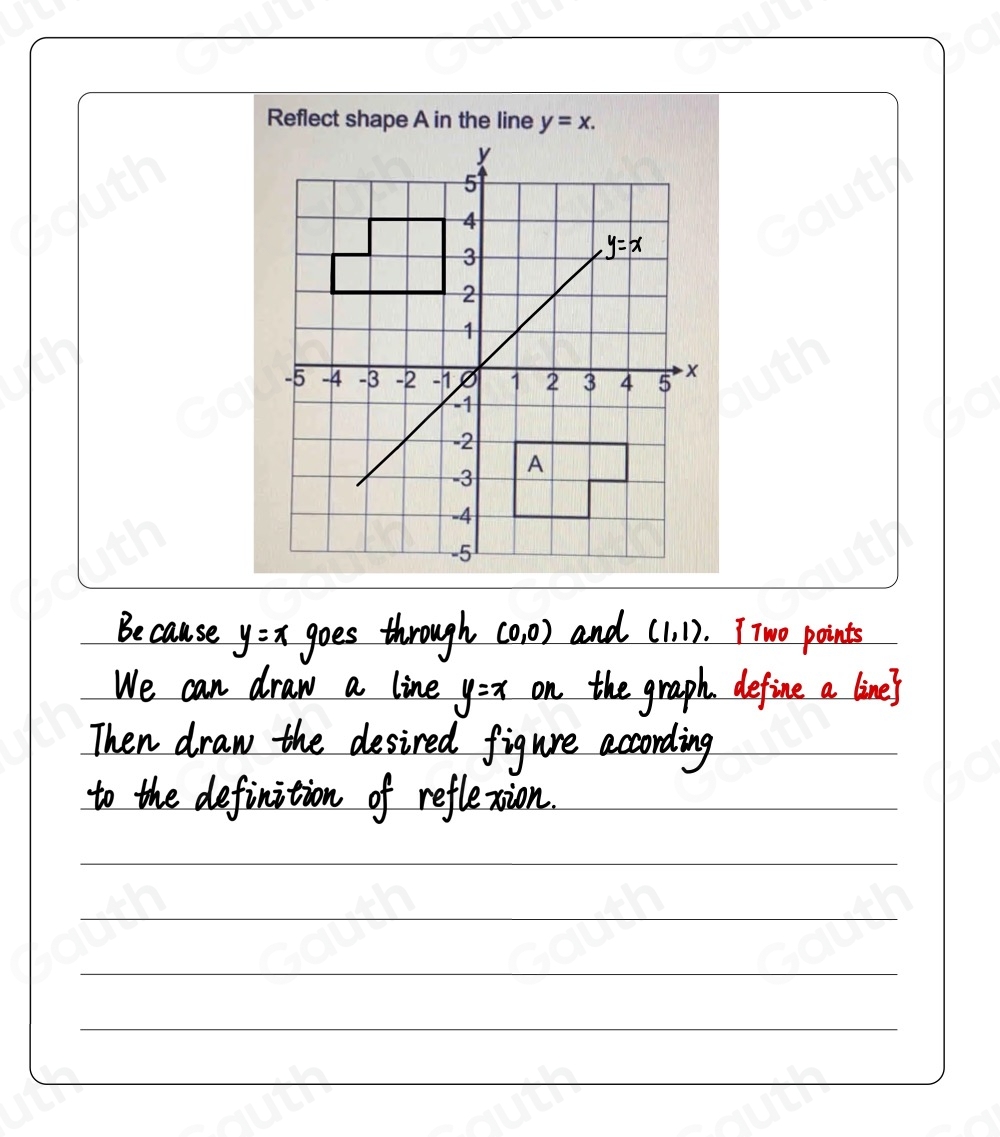 Reflect shape A in the line y = x.
y
5
4
y=x
3
2
1
x
-5 -4 -3 -2 -1 O 1 2 3 4 5
-1
-2
A
-3
-4
-5
Because y=x goes through (0,0) and (1,1). {Two points
We can draw a line y=x on the graph. define a line}
Then draw the desired figure according
to the definition of reflexion.
Gauth